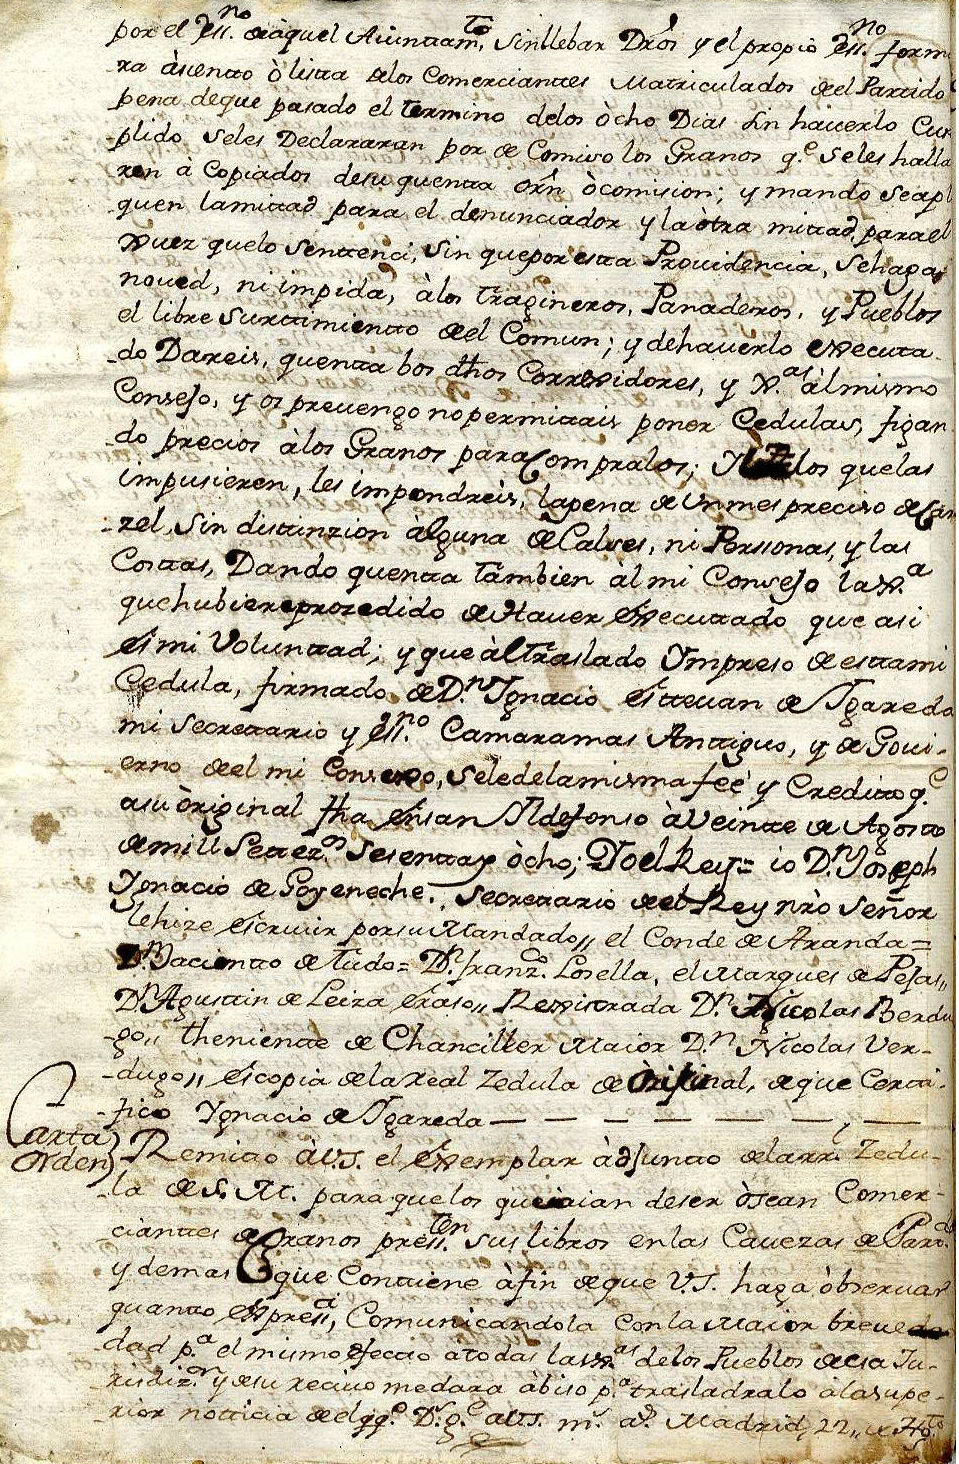 por el Ess.no de àquel Aiuntam.to, sin llebar Dros y el propio Ess.no forma
ra àsiento ò lista de los Comerciantes Matriculados de el Partido
pena de que pasado el termino de los òcho Dias sin hauerlo Cum
plido se les Declararan por de Comiso los Granos q.e se les halla
ren à Copiados de su quenta orn ò comision; y mando se apli
quen la mitad para el denunciador y la òtra mitad para el
Xuez que lo sentenci, sin que por esta Providencia, se haga
noued, ni impida, à los tragineros, Panaderos, y Pueblos
el libre surtimiento de el Comun; y de hauerlo executa
do Dareis, quenta bos dhos Correxidores, y X.as àl mismo
Consejo, y os preuengo no permitais poner Cedulas, figan
do precios à los Granos para Compralos; y los que las
impusieren, les impondreis, la pena de un mes preciso de Car
zel, sin distinzion àlguna de Calses, ni Perssonas, y las
Costas, Dando quenta tambien àl mi Consejo la X.a
que hubiere prozedido de Hauer Executado que asi
Es mi Voluntad; y que àl traslado Ympreso de esta mi
Cedula, firmado de D.n Ygnacio Esteuan de Ygareda
mi secretario y Ess.no Camara mas Antiguo, y de Goui-
erno de el mi Consexo, se le de la misma feé y Credito q.e
a su òriginal fha En san Yldefonso à Veinte de Agosto
de mill Setez.os Sesenta y òcho; Yo el Rey = io D.n Joseph
Ygnacio de Goyeneche., secretario de el Rey nrò señor
le hize Escriuir por su Mandado,, el Conde de Aranda =
D.n Jacinto de tudo = D.n franz.co Losella, el Marques de Pejas,,
D.n Agustin de Leiza Eraso,, Rexistrada D.n Nicolas Berdu
go,, theniente de Chanciller Maior D.n Nicolas Ver-
dugo,, Es copia de la Real Zedula de òriginal, de que Certi-
fico Ygnacio de Ygareda — — — — — — —
Carta Orden
Remito à V.S. el Exemplar àdjunto de la rr.l Zedu-
la de S. M. para que los que aian de ser ò sean Comer-
ciantes de Granos presten sus libros en las Cauezas de Part.do
y demas que Contiene à fin de que V.S. haga òbseruar
quanto Expressa, Comunicandola Con la Maior breue
dad p.a el mismo Efecto à todas las X.as de los Pueblos de esa Ju-
risdiz.on y de su reciuo me dara àbiso p.a trasladralo à la supe-
rior noticia de el q.e D.s g.e à V.S. m.s a.s Madrid, 22,, de Ag.to